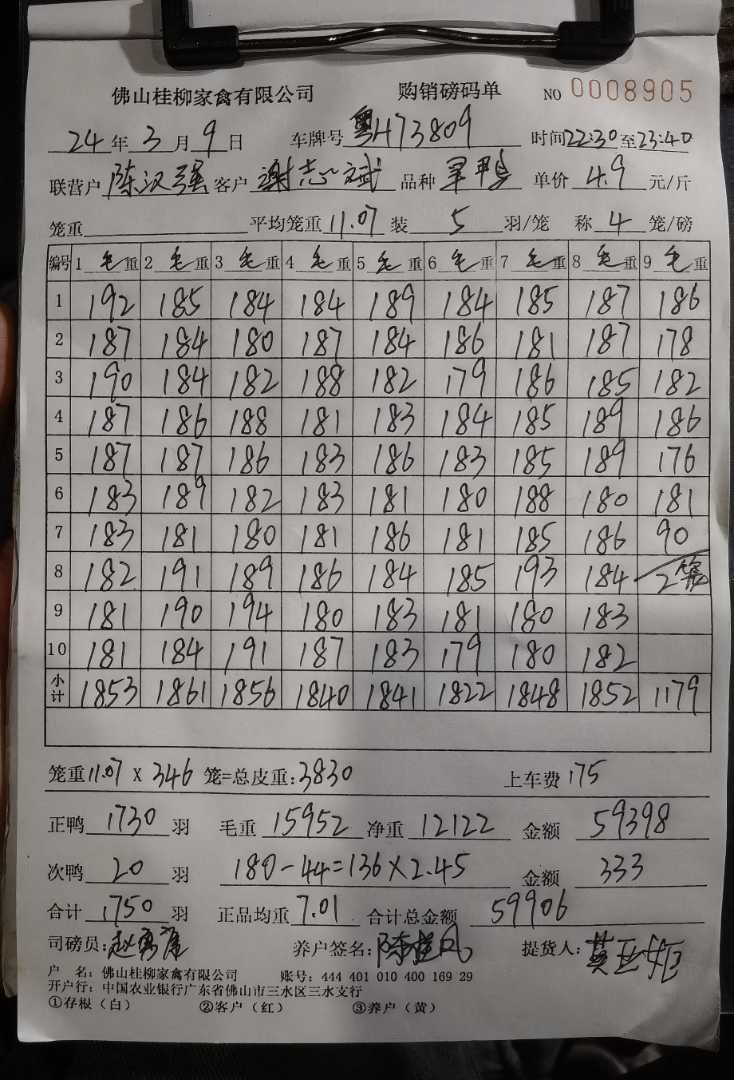 佛山桂柳家禽有限公司 购销磅码单 NO 0008905
24年3月9日 车牌号 粤H73809 时间22:30至23:40
联营户 陈汉强 客户 谢志斌 品种 旱鸭 单价 4.9 元/斤
笼重 平均笼重 11.07 装 5 羽/笼 称 4 笼/磅
编号 1 毛重 2 毛重 3 毛重 4 毛重 5 毛重 6 毛重 7 毛重 8 毛重 9 毛重
1 192 185 184 184 189 184 185 187 186
2 187 184 180 187 184 186 181 187 178
3 190 184 182 188 182 179 186 185 182
4 187 186 188 181 183 184 185 189 186
5 187 187 186 183 186 183 185 189 176
6 183 189 182 183 181 180 188 180 181
7 183 181 180 181 186 181 185 186 90
8 182 191 189 186 184 185 193 184 2笼
9 181 190 194 180 183 181 180 183
10 181 184 191 187 183 179 180 182
小计 1853 1861 1856 1840 1841 1822 1848 1852 1179
笼重 11.07 X 346 笼=总皮重:3830 上车费 175
正鸭 1730 羽 毛重 15952 净重 12122 金额 59398
次鸭 20 羽 180-44=136×2.45 金额 333
合计 1750 羽 正品均重 7.01 合计总金额 59906
司磅员: 养户签名: 提货人:
户 名: 佛山桂柳家禽有限公司 账号: 444 401 010 400 169 29
开户行: 中国农业银行广东省佛山市三水区三水支行
①存根(白) ②客户(红) ③养户(黄)